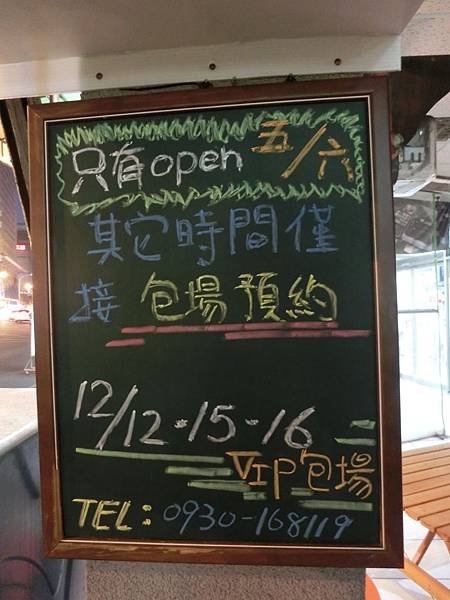 只有open 五/六
其它時間僅
接 包場預約
12/12-15-16
VIP包場
TEL: 0930-168119